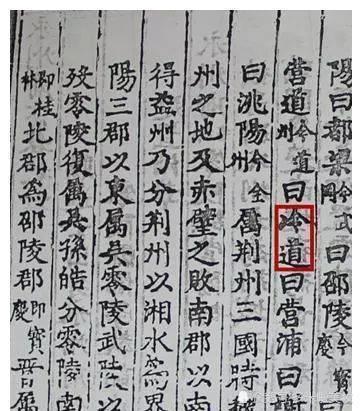 陽曰都梁今武岡曰邵陵今寶慶
營道今道州曰泠道曰營浦曰
曰洮陽今全州属荆州三國時
州之地及赤壁之敗南郡以南
得益州乃分荆州以湘水爲界
陽三郡以東属吳零陵武陵
歿零陵復属吳孫皓分零陵南
即桂林北郡為邵陵郡即寶慶晉属